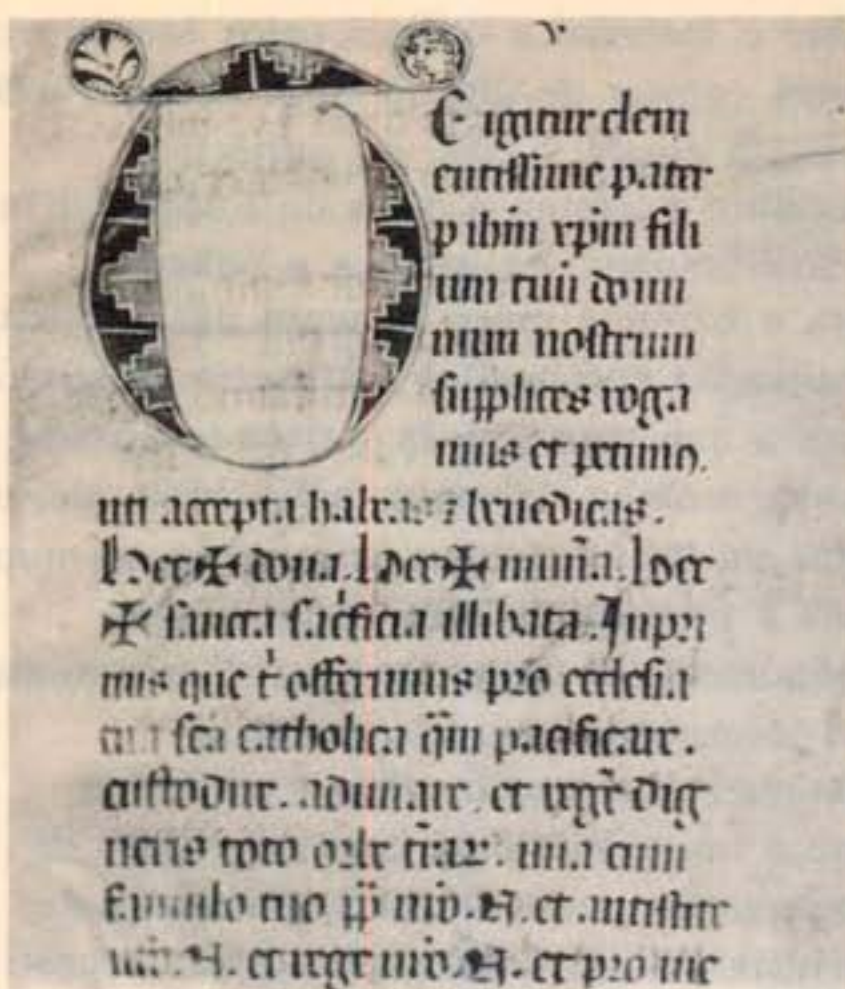 TE igitur clem
entissime pater
p ihm xpm fili
um tuū domi
num nostrum
supplices roga
mus et petimꝰ.
uti accepta habeas ⁊ benedicas.
Hec ✠ dona. hec ✠ munā. hec
✠ sancta sacͥficia illibata. Inpri
mis que tͥ offerimus pro ecclesia
tua scā catholica qm̄ pacificare.
custodire. adunare. et regere dig
neris toto orbe trar̄. una cum
famulo tuo pp̄ nr̄o .N. et antistite
nr̄o .N. et rege nr̄o .N. et pro me